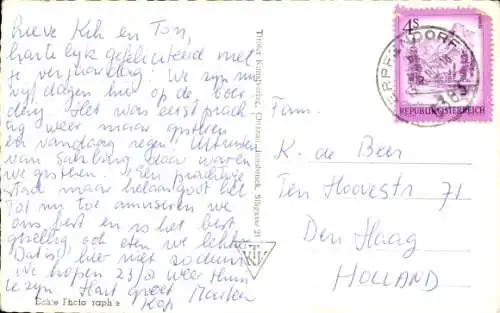 Lieve Keh en Ton,
hartelijk gefeliciteerd met
je verjaardag! We zijn nu
vijf dagen hier op de boer
derij. Het was eerst prach
tig weer maar gisteren
en vandaag regen. Uitrusten
van Salzburg daar waren
we gisteren. Een prachtige
stad maar helaas goot het
Tot nu toe amuseren we
ons best en is het best
gezellig ook eten we lekker
Dat is hier niet zo duur
We hopen 23/8 weer thuis
te zijn. Hart. groet Maarten
Kap
Echte Photographie
Tiroler Kunstverlag, Chizzali, Innsbruck, Sillgasse 21
TKV
4S
REPUBLIK ÖSTERREICH
ERPFENDORF
6383
Fam.
K. de Beer
Ten Hovestr 71
Den Haag
HOLLAND